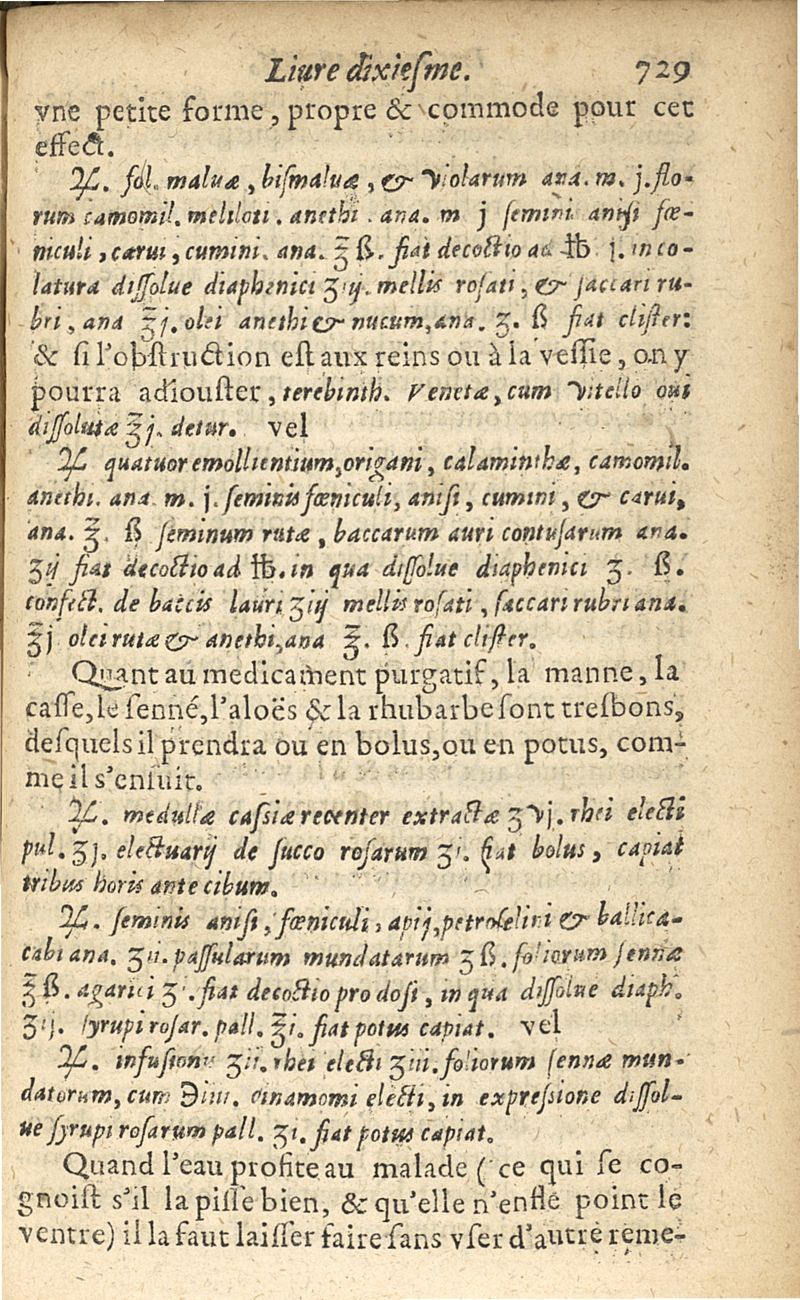 Liure dixiesme. 729
vne petite forme, propre & commode pour cet
effect.
℞. fol. maluæ, bismaluæ, & violarum ana. m. j. flo-
rum camomil. meliloti. anethi. ana. m j semini anisi fœ-
niculi, carui, cumini. ana. ℥ ß. fiat decoctio ad ℔ j. in co-
latura dissolue diaphenici ʒ iij. mellis rosati, & saccari ru-
bri, ana ℥j. olei anethi & nucum, ana. ʒ. ß fiat clister:
& si l'obstruction est aux reins ou à la vessie, on y
pourra adiouster, terebinth. Venetæ, cum vitello oui
dissolutæ ℥j. detur. vel
℞ quatuor emollientium, origani, calaminthæ, camomil.
anethi. ana. m. j. seminis fœniculi, anisi, cumini, & carui,
ana. ℥. ß seminum rutæ, baccarum auri contusarum ana.
ʒij fiat decoctio ad ℔. in qua dissolue diaphenici ʒ. ß.
confect. de baccis lauri ʒiij mellis rosati, saccari rubri ana.
℥j olei rutæ & anethi, ana ℥. ß fiat clister.
Quant au medicament purgatif, la manne, la
casse, le senné, l'aloës & la rhubarbe sont tresbons,
desquels il prendra ou en bolus, ou en potus, com-
me il s'ensuit.
℞. medullæ cassiæ recenter extractæ ʒ vj. rhei electi
pul. ʒj. electuarij de succo rosarum ʒi. fiat bolus, capiat
tribus horis ante cibum.
℞. seminis anisi, fœniculi, apij, petroselini & ballica-
cabi ana. ʒii. passularum mundatarum ʒ ß. foliorum sennæ
℥ß. agarici ʒi. fiat decoctio pro dosi, in qua dissolue diaph.
ʒij. syrupi rosar. pall. ℥i. fiat potus capiat. vel
℞. infusionis ʒii. rhei electi ʒiii. foliorum sennæ mun-
datorum, cum ℈iiii. cinamomi electi, in expressione dissol-
ue syrupi rosarum pall. ʒi. fiat potus capiat.
Quand l'eau profite au malade (ce qui se co-
gnoist s'il la pisse bien, & qu'elle n'enfle point le
ventre) il la faut laisser faire sans vser d'autre reme-